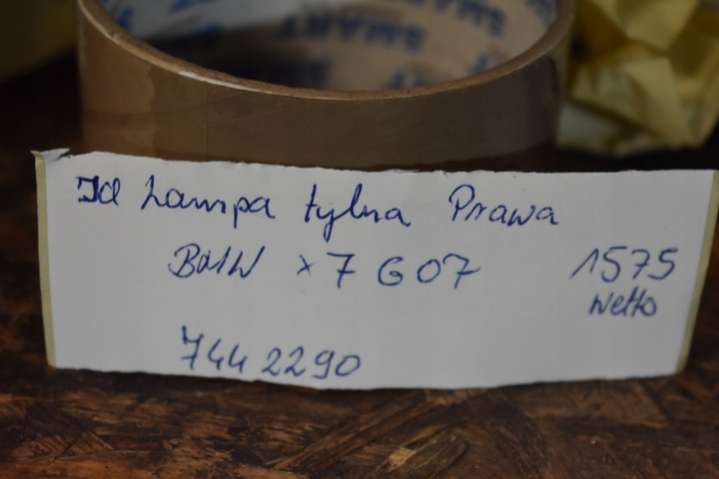 SMART
Id Lampa tylna Prawa
BMW x7 G07
1575
netto
7442290